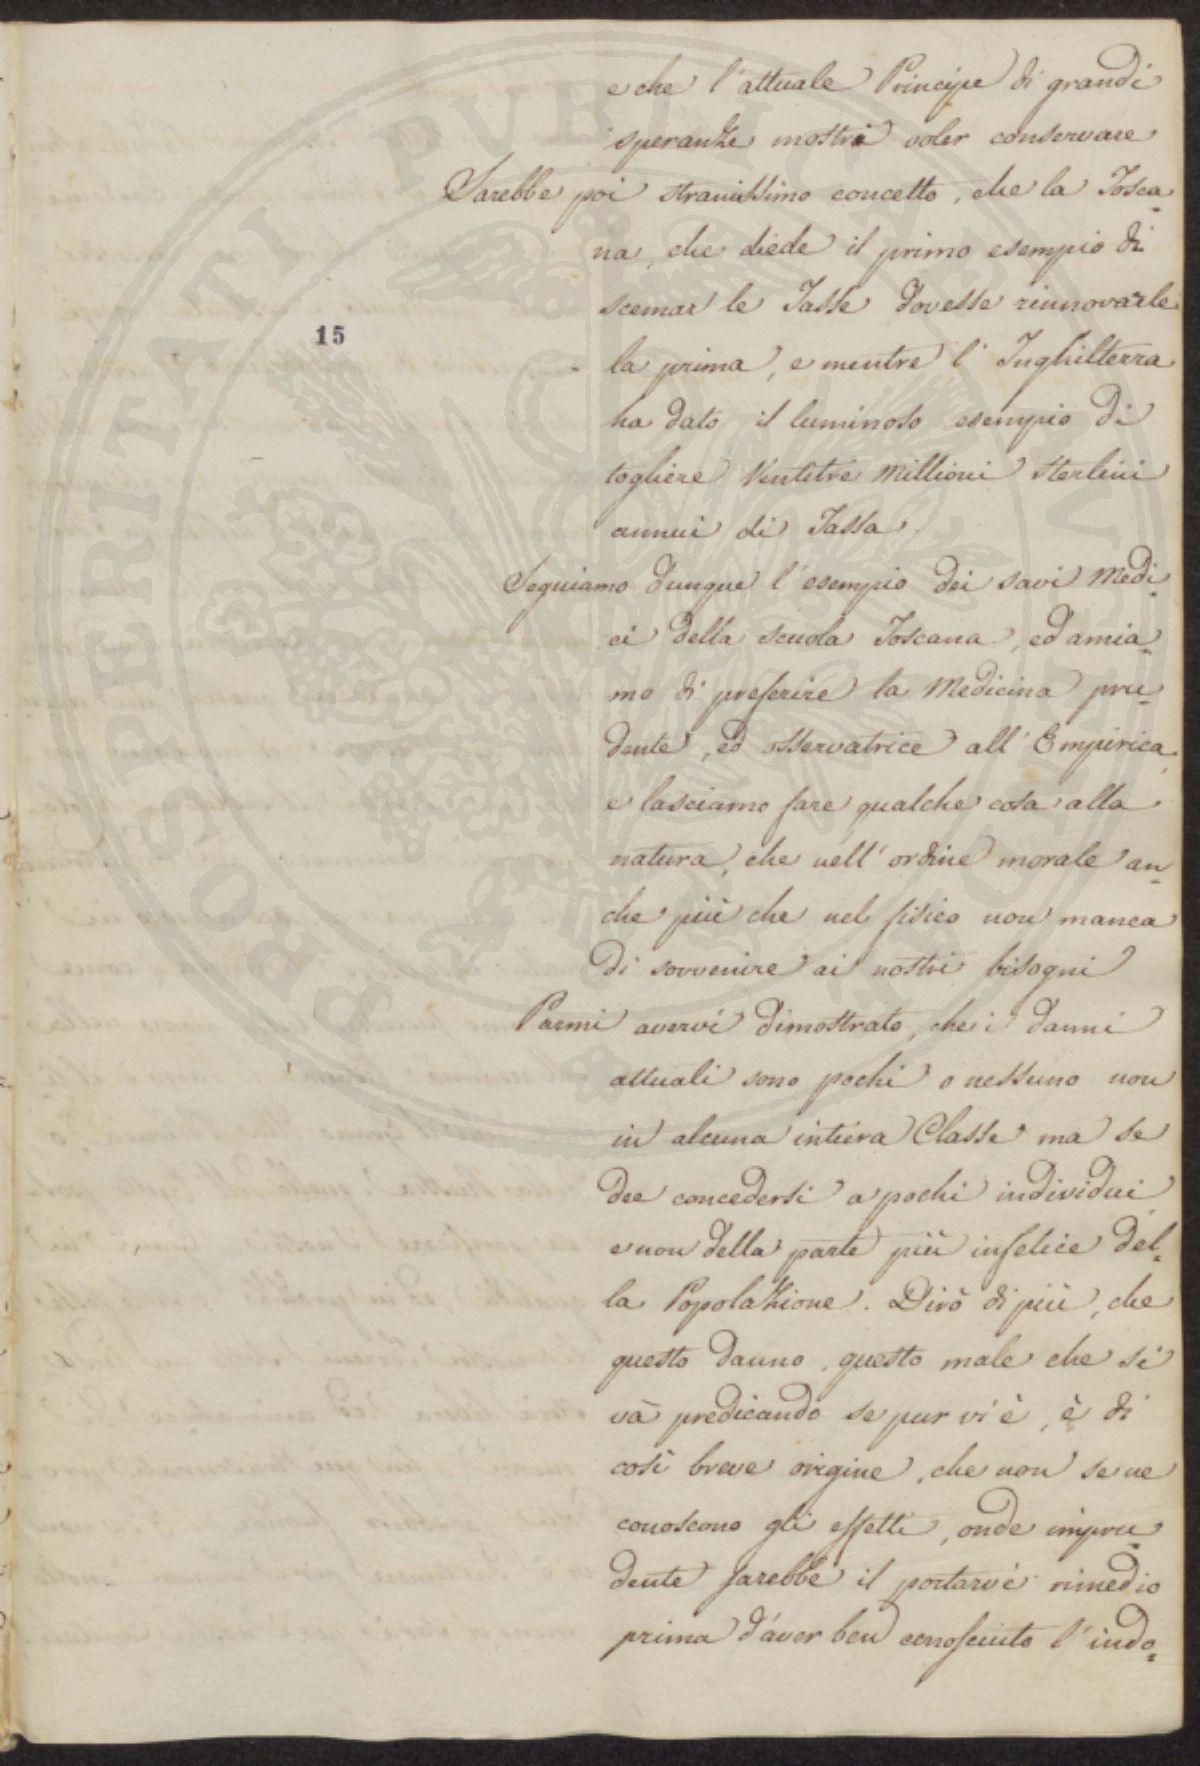 e che l'attuale Principe di grandi
speranze mostri voler conservare
Sarebbe poi stranissimo concetto, che la Tosca=
na, che diede il primo esempio di
scemar le Tasse dovesse rinnovarle
la prima, e mentre l'Inghilterra
15
ha dato il luminoso esempio di
togliere Ventitre Millioni Sterlini
annui di Tassa.
Seguiamo dunque l'esempio dei savi Medi=
ci della scuola Toscana, ed amia=
mo di preferire la Medicina pru=
dente, ed osservatrice all'Empirica,
e lasciamo fare qualche cosa alla
natura, che nell'ordine morale an=
che più che nel fisico non manca
di sovvenire ai nostri bisogni
Parmi avervi dimostrato, che i danni
attuali sono pochi o nessuno non
in alcuna intiera Classe ma se
dee concedersi a pochi individui,
e non della parte più infelice del=
la Popolazione. Dirò di più, che
questo danno, questo male che si
và predicando se pur vi è, è di
così breve origine, che non se ne
conoscono gli effetti, onde impru=
dente sarebbe il portarvi rimedio
prima d'aver ben conosciuto l'indo=
PROSPERITATI PUBLICAE AUGENDAE